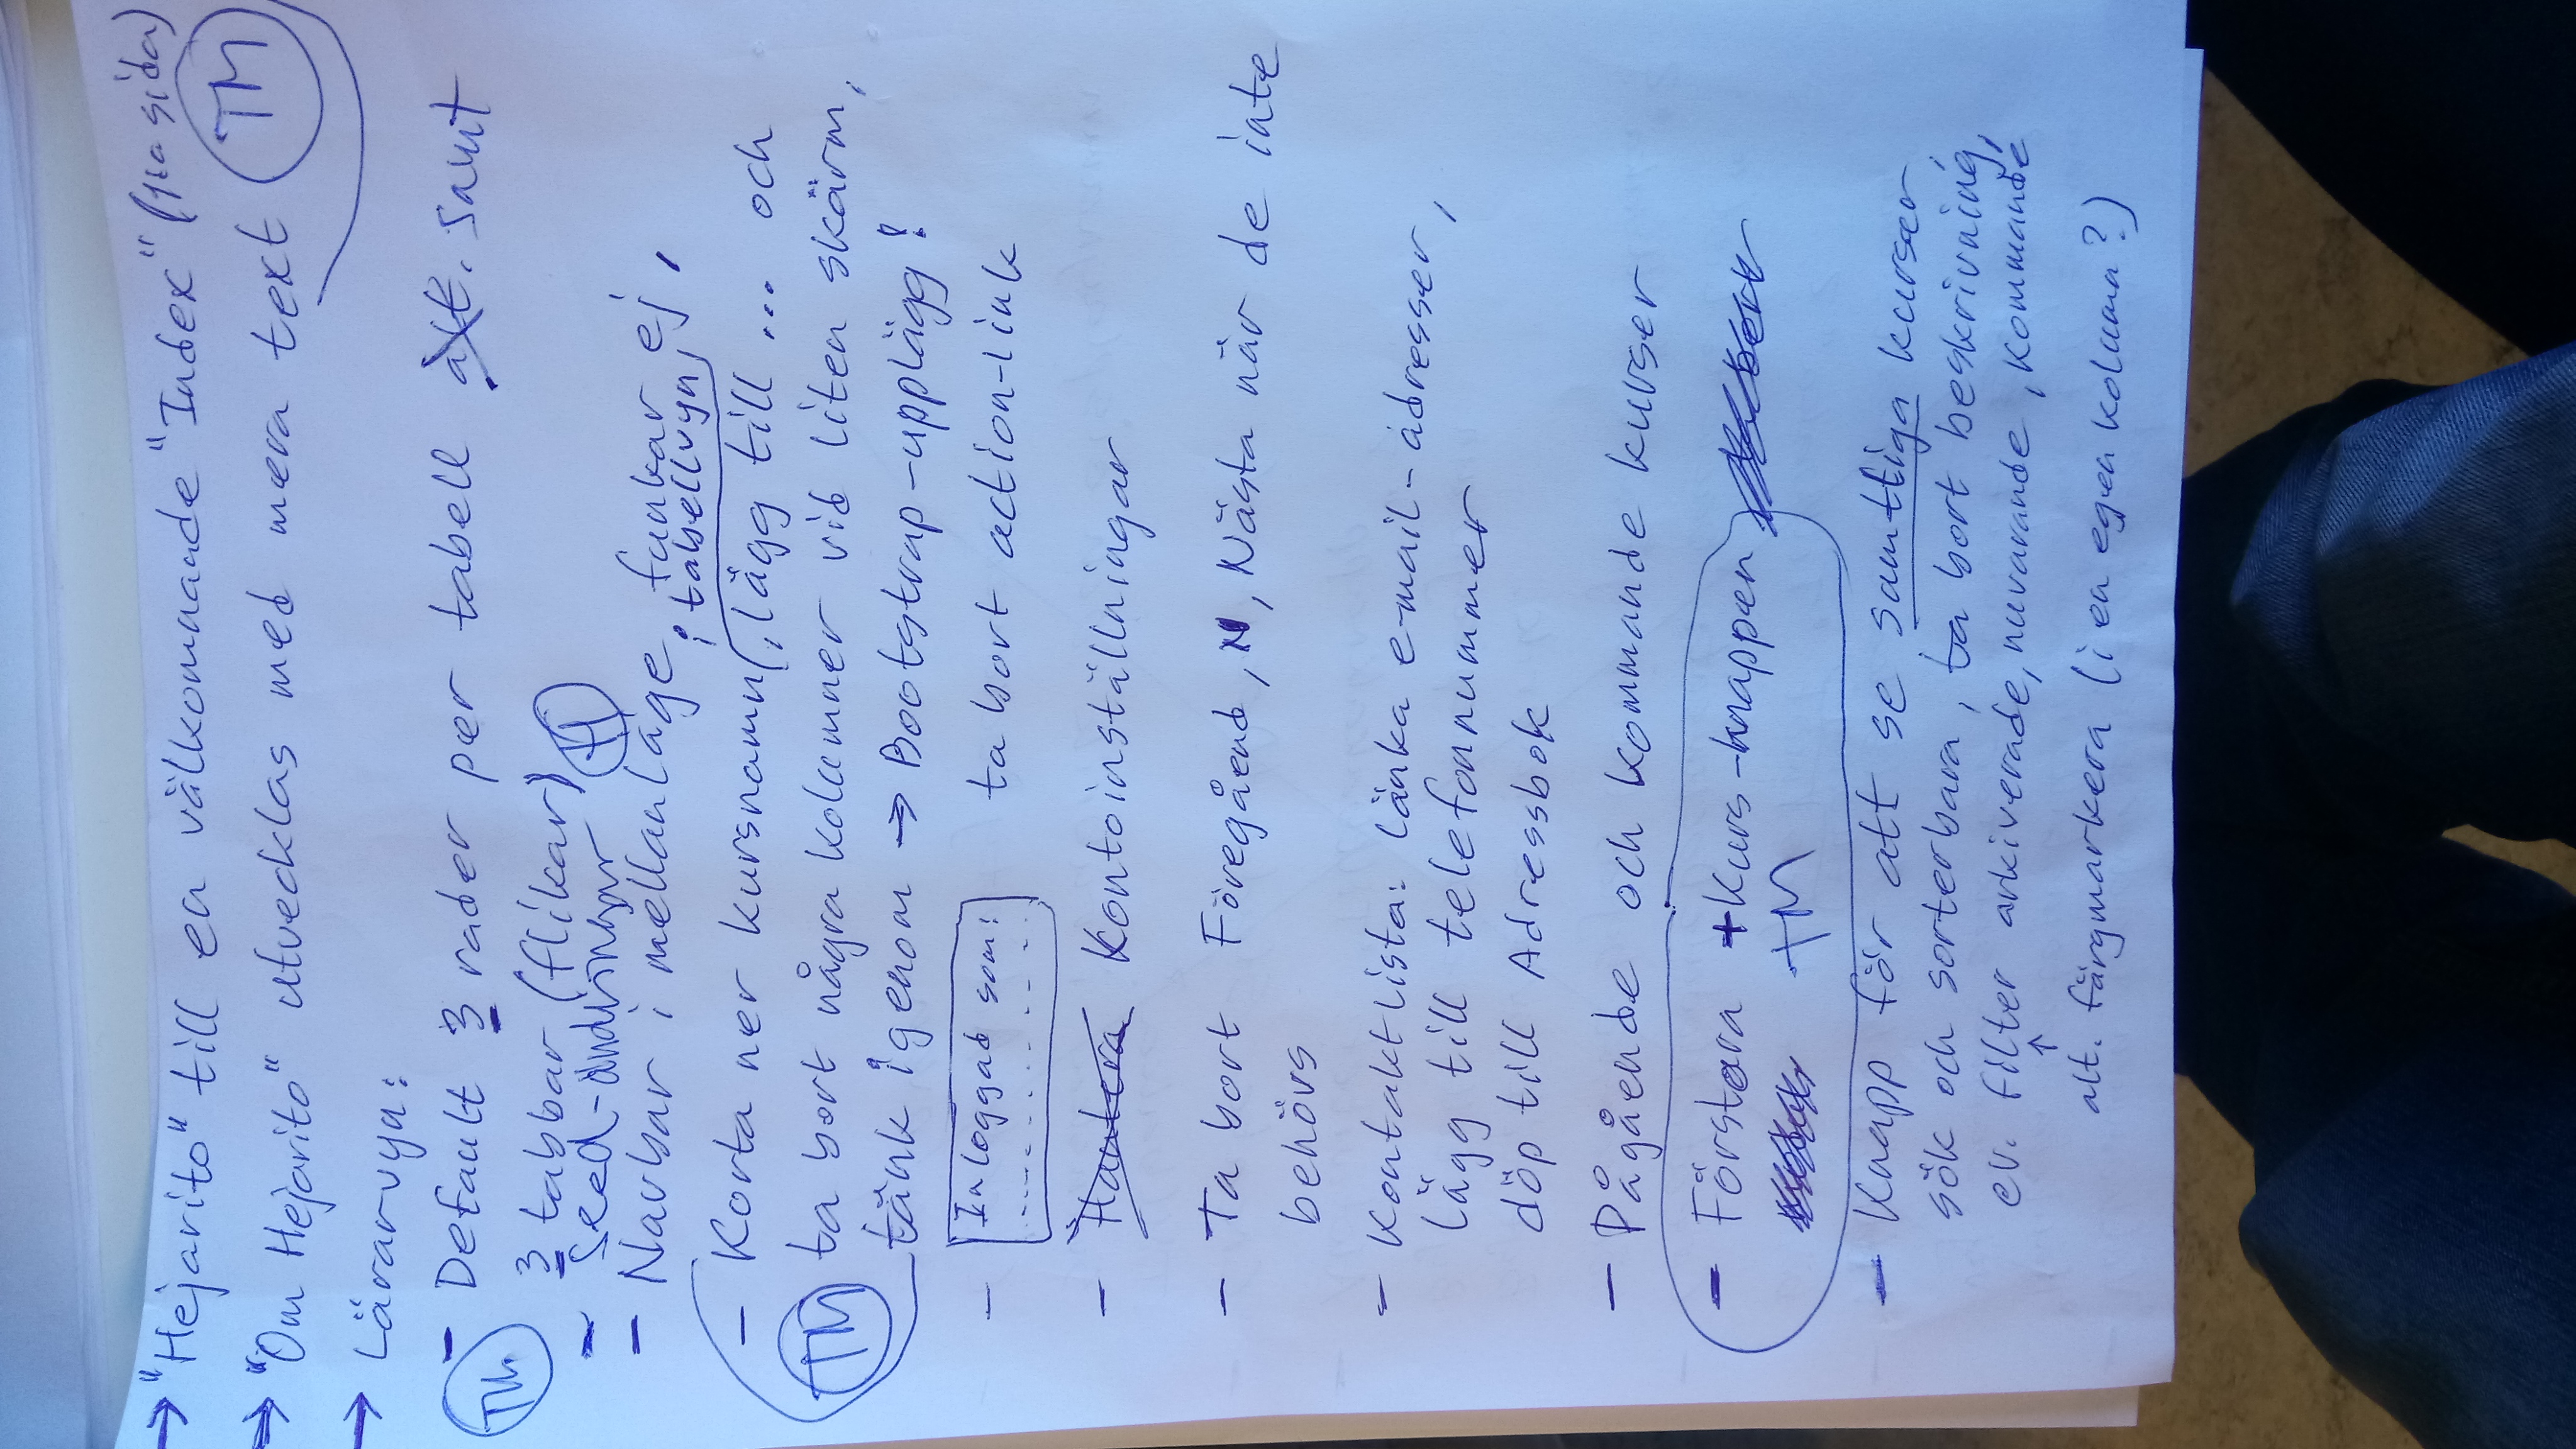 → "Hejarito" till en välkomnande "Index" (1:a sida)
→ "Om Hejarito" utvecklas med mera text TM
→ Lärarvyn:
- Default 3 rader per tabell alt. samt
TM
3 tabbar (flikar)
- Seed-ändringar H
- Navbar i mellanläge, funkar ej,
i tabellvyn
- Korta ner kursnamn, lägg till ... och
TM ta bort några kolumner vid liten skärm,
tänk igenom → Bootstrap-upplägg!
- Inloggad som: ta bort action-link
- Hantera Kontoinställningar
- Ta bort Föregåend, N, Nästa när de inte
behövs
- Kontaktlista: länka e-mail-adresser,
lägg till telefonnummer
döp till Adressbok
- Pågående och kommande kurser
- Förstora +Kurs-knappen
TM
- Knapp för att se samtliga kurser,
sök och sorterbara, ta bort beskrivning,
ev. filter arkiverade, nuvarande, kommande
↑
alt. färgmarkera (i en egen kolumn?)